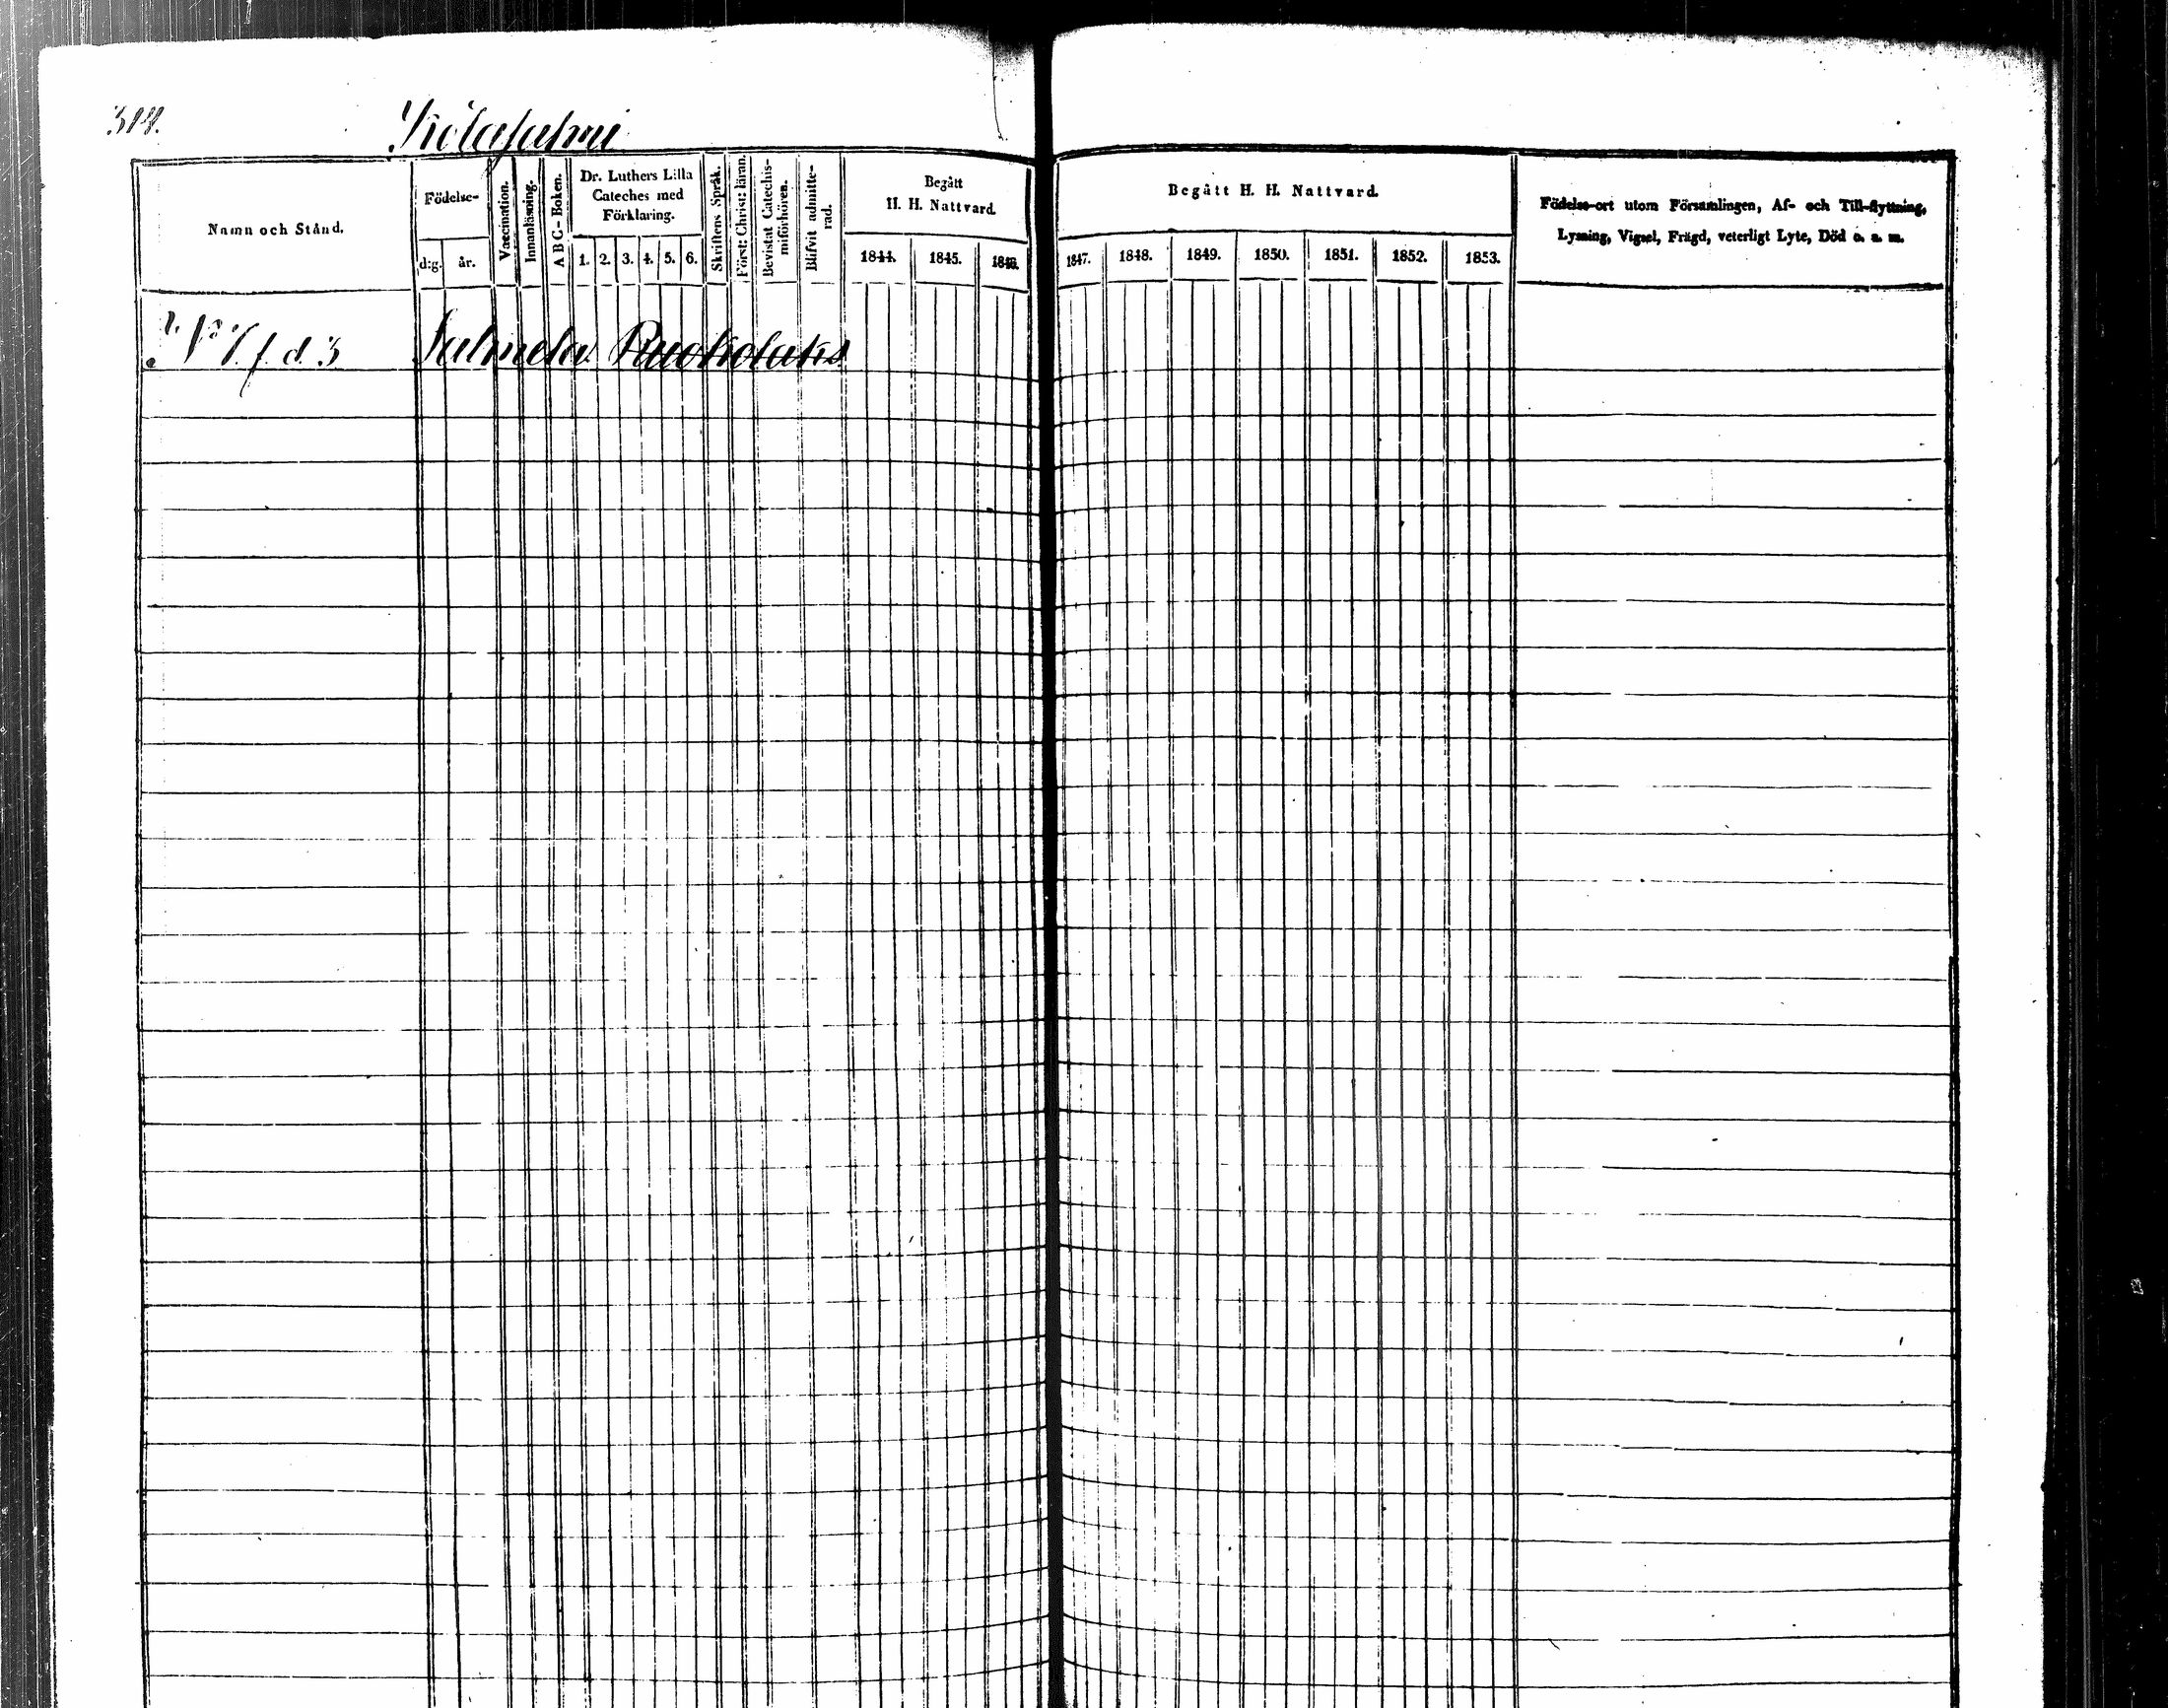 314.
Kolajahni
Namn och Stånd.
Födelse-
d:g.
år.
Vaccination.
Innanläsning.
A B C - Boken.
Dr. Luthers Lilla
Cateches med
Förklaring.
1. 2. 3. 4. 5. 6.
Skriftens Språk.
Först: Christ: läran.
Bevistat Catechis-
miförhören.
Blifvit admitte-
rad.
Begått
H. H. Nattvard.
1844. 1845. 1846.
Begått H. H. Nattvard.
1847. 1848. 1849. 1850. 1851. 1852. 1853.
Födelse-ort utom Församlingen, Af- och Till-flyttning,
Lysning, Vigsel, Frägd, veterligt Lyte, Död o. s. m.
f. d. 3 Salmela Ruokolaks